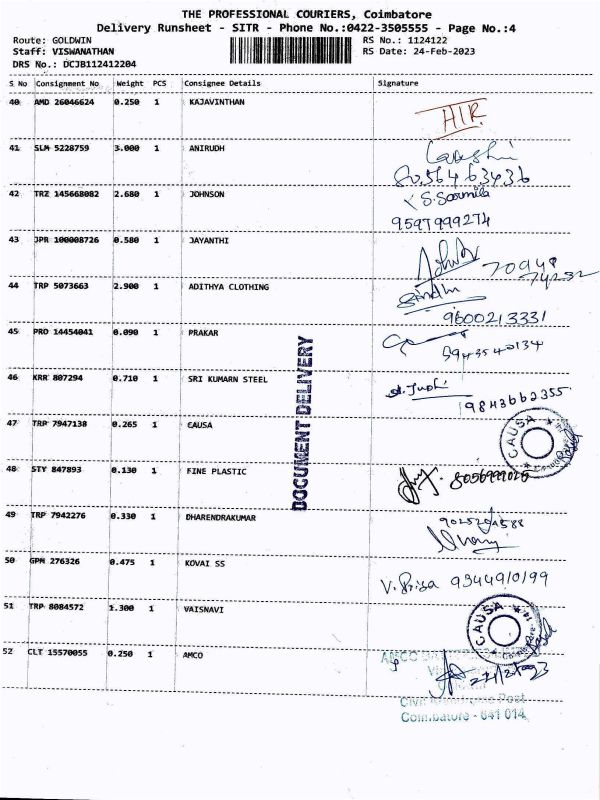 THE PROFESSIONAL COURIERS, Coimbatore
Delivery Runsheet - SITR - Phone No.:0422-3505555 - Page No.:4
Route: GOLDWIN
RS No.: 1124122
Staff: VISWANATHAN
RS Date: 24-Feb-2023
DRS No.: DCJB112412204
S No Consignment No Weight PCS Consignee Details Signature
40 AMD 26046624 0.250 1 KAJAVINTHAN
41 SLM 5228759 3.000 1 ANIRUDH
8056463436
42 TRZ 145668082 2.680 1 JOHNSON S. Sarmila
9597999274
43 JPR 100008726 0.580 1 JAYANTHI
70948
74232
44 TRP 5073663 2.900 1 ADITHYA CLOTHING Sindhu
9600213331
45 PRO 14454041 0.090 1 PRAKAR
9943540134
46 KRR 807294 0.710 1 SRI KUMARN STEEL
9843662355
DOCUMENT DELIVERY
47 TRP 7947138 0.265 1 CAUSA
CAUSA
48 STY 847893 0.130 1 FINE PLASTIC 8056999025
49 TRP 7942276 0.330 1 DHARENDRAKUMAR
50 GPM 276326 0.475 1 KOVAI SS
V. Priya 9344910199
51 TRP 8084572 1.300 1 VAISNAVI
CAUSA
52 CLT 15570055 0.250 1 AMCO
AMCO
Civil Aerodrome Post
Coimbatore - 641 014